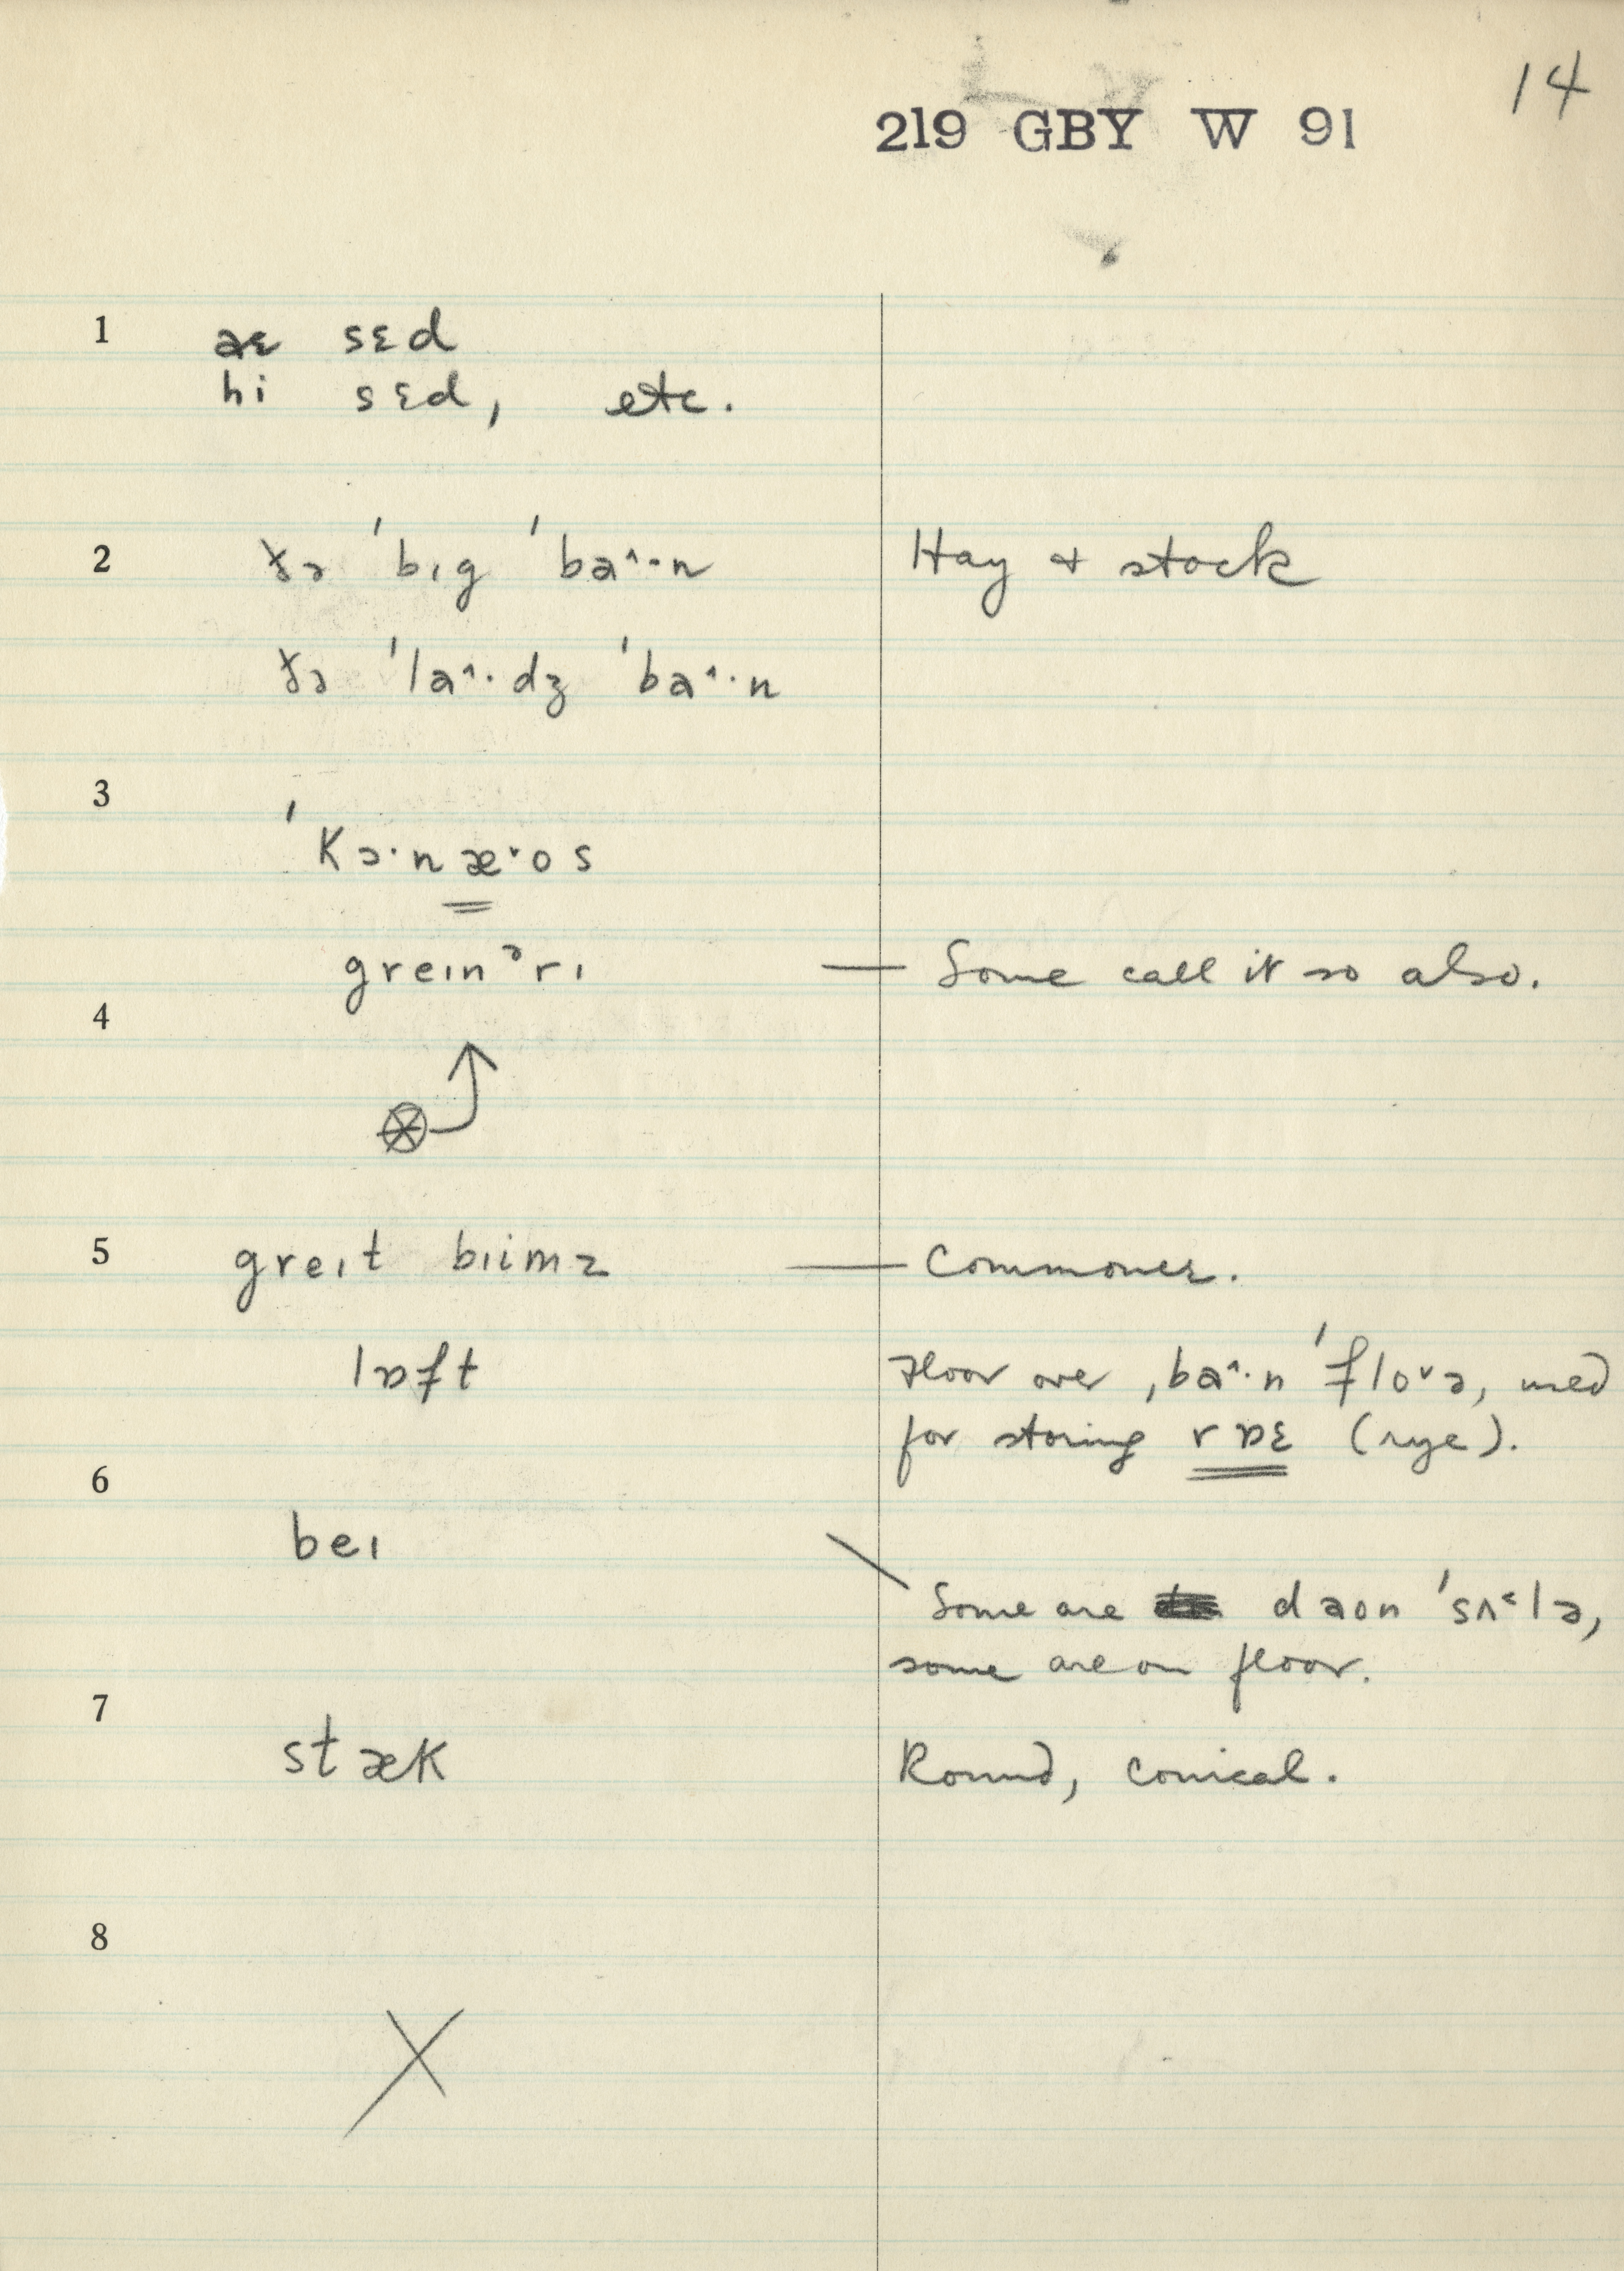 14
219 GBY W 91
1 aɛ sɛd
hi sɛd, etc.
2 ðə 'bɪg 'baˆ·n Hay + stock
ðə 'laˆ·dʒ 'baˆ·n
3
'kɔ·næˇos
greɪnᵊrɪ — Some call it so also.
4
5 greɪt bɪimz — Commoner.
lɒft Floor over ˌbaˆ·n 'floˇə, used
for storing rɒɛ (rye).
6
beɪ
Some are daon 'sʌ˂lə,
some are on floor.
7
stæk Round, conical.
8
X